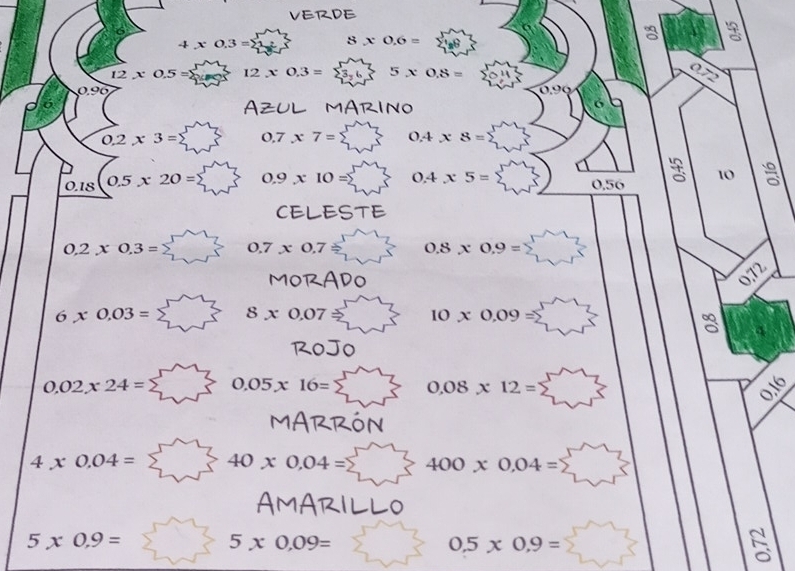 VERDE
4 x 0,3 =
8 x 0,6 =
12 x 0,5 =
12 x 0,3 = 3,6
5 x 0,8 =
0,96
0,96
6
6
AZUL MARINO
0,2 x 3 =
0,7 x 7 =
0,4 x 8 =
0,18
0,5 x 20 =
0,9 x 10 =
0,4 x 5 =
0,56
CELESTE
0,2 x 0,3 =
0,7 x 0,7 =
0,8 x 0,9 =
MORADO
6 x 0,03 =
8 x 0,07 =
10 x 0,09 =
ROJO
0,02 x 24 =
0,05 x 16 =
0,08 x 12 =
MARRÓN
4 x 0,04 =
40 x 0,04 =
400 x 0,04 =
AMARILLO
5 x 0,9 =
5 x 0,09 =
0,5 x 0,9 =
0,8
0,45
0,72
0,45
10
0,16
0,72
0,8
4
0,16
0,72